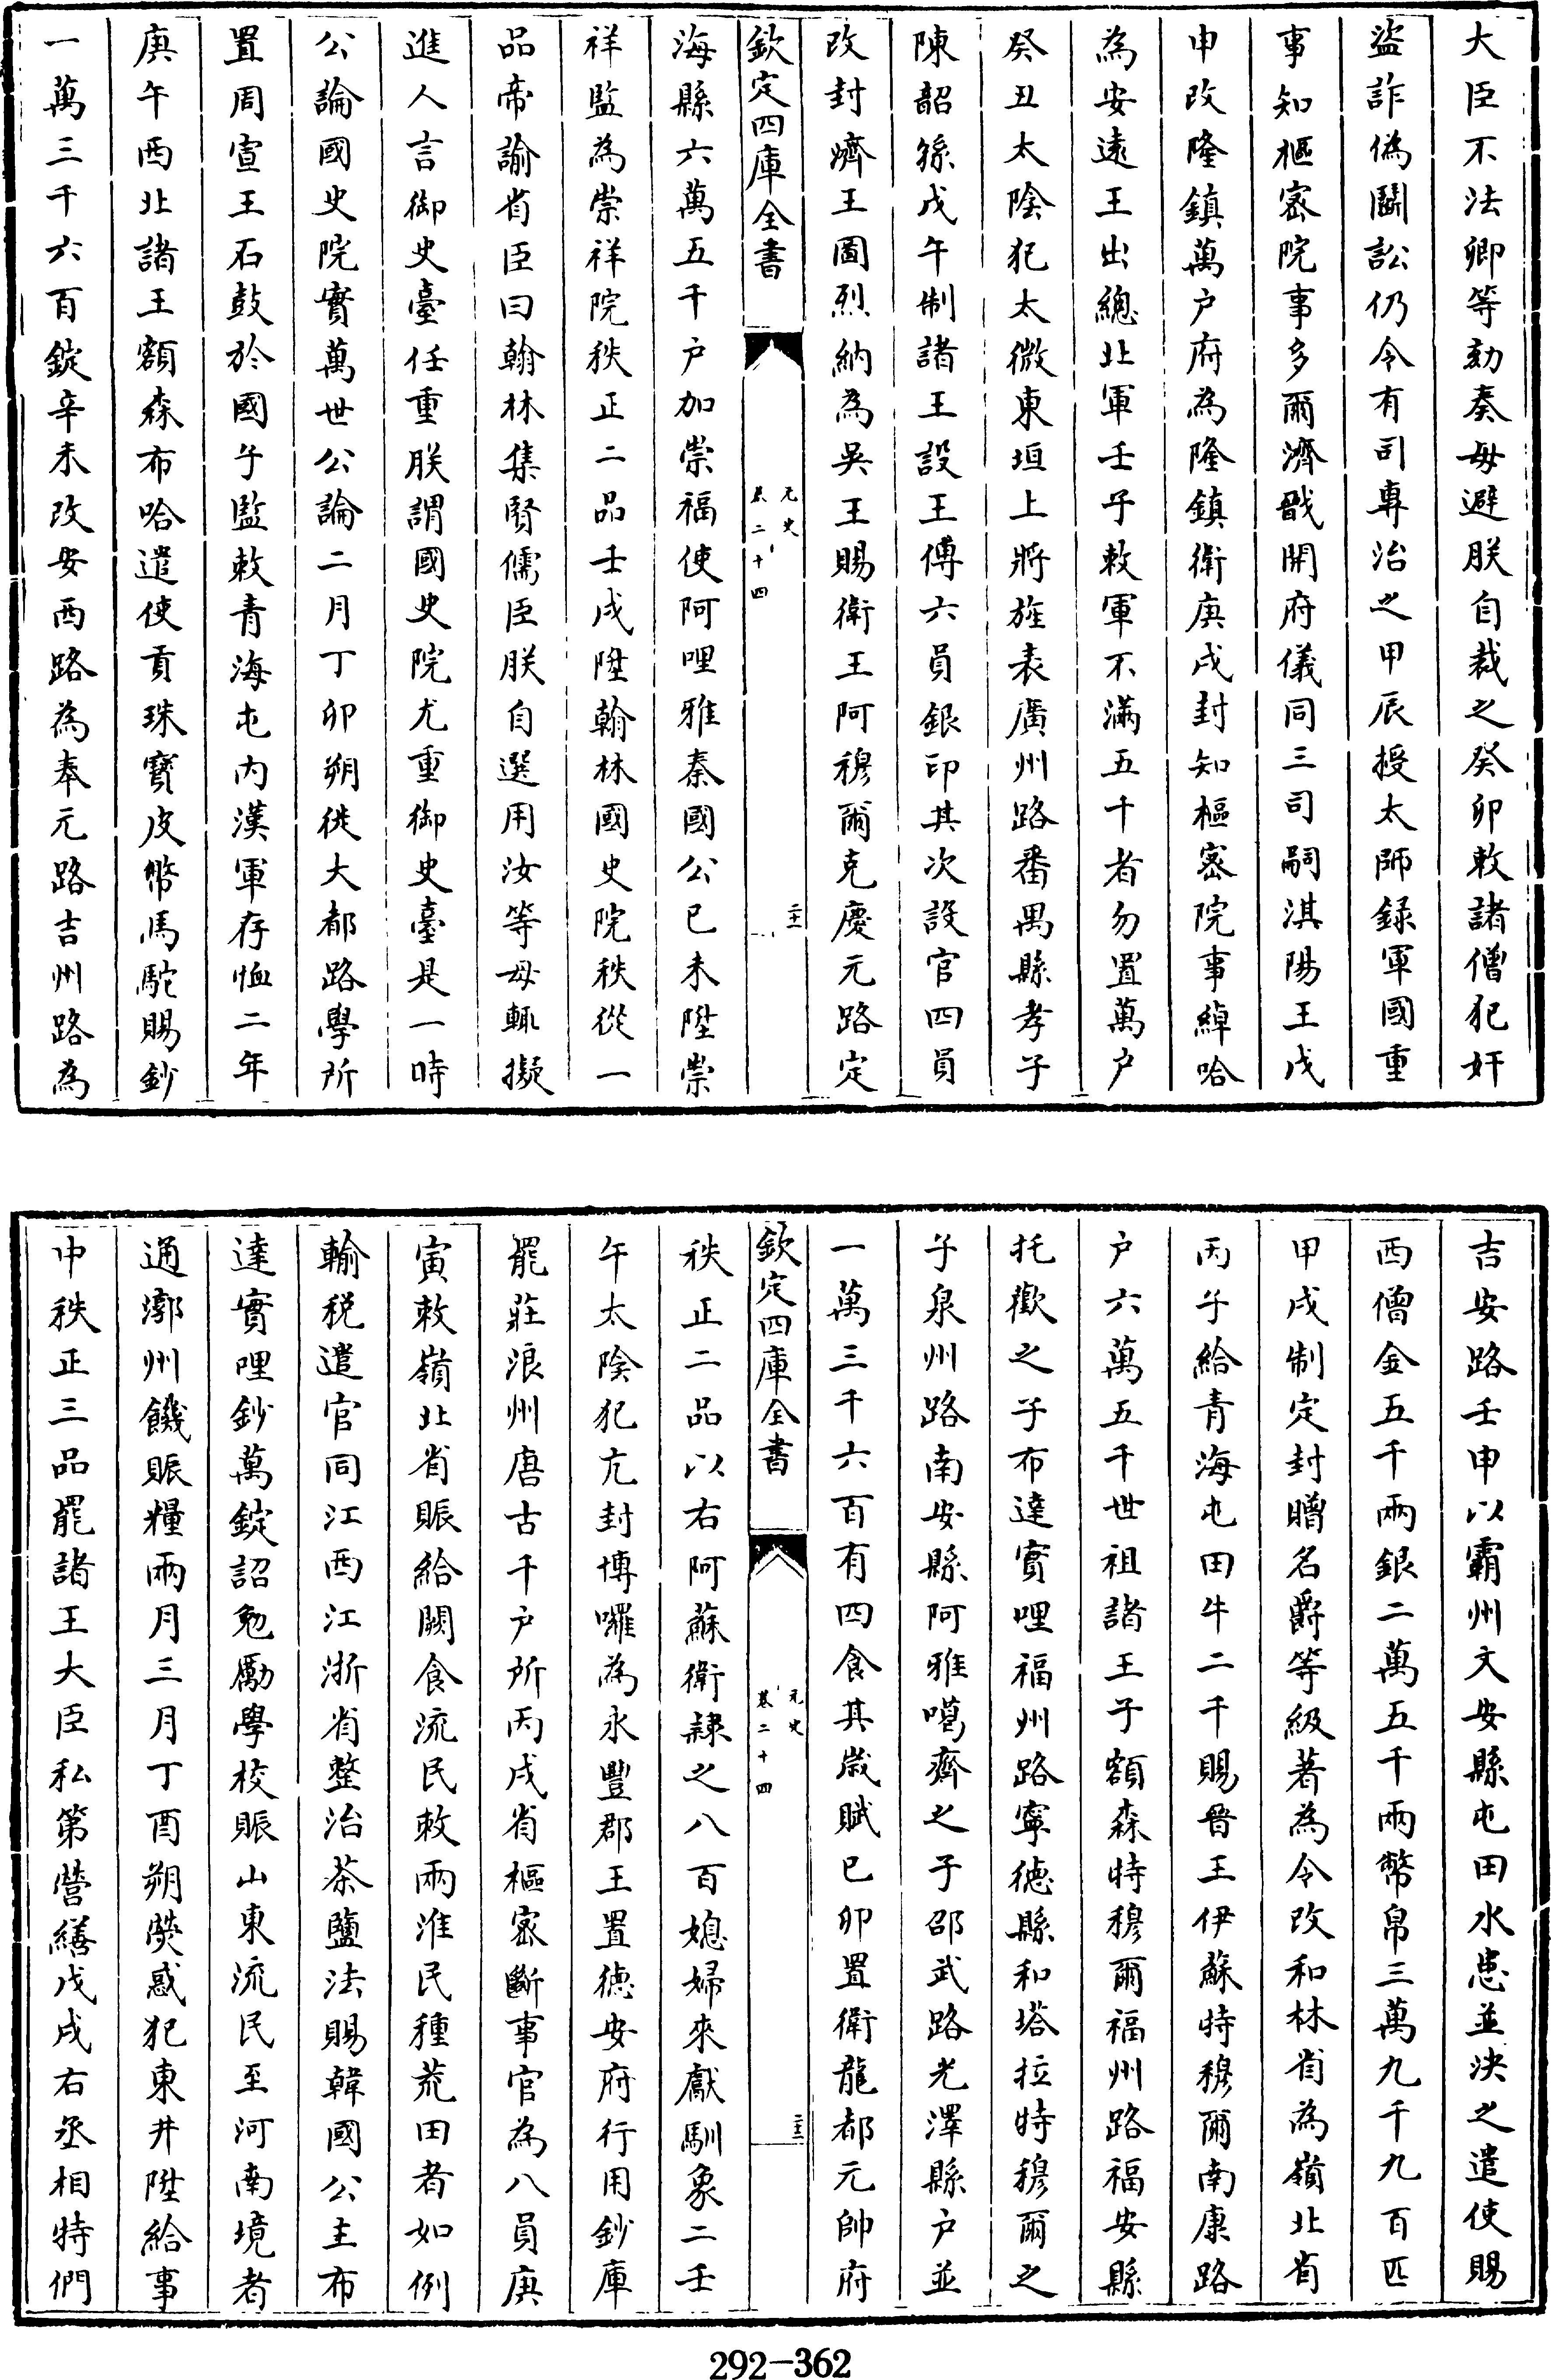 大臣不法卿等劾奏毋避朕自裁之癸卯敕諸僧犯奸
盜詐偽鬬訟仍令有司專治之甲辰授太師録軍國重
事知樞密院事多爾濟戩開府儀同三司嗣淇陽王戊
申改隆鎮萬户府為隆鎮衛庚戌封知樞密院事綽哈
為安逺王出總北軍壬子敕軍不滿五千者勿置萬户
癸丑太陰犯太微東垣上將旌表廣州路番禺縣孝子
陳韶孫戊午制諸王設王傅六員銀印其次設官四員
改封濟王圖烈納為吳王賜衛王阿穆爾克慶元路定
欽定四庫全書
元史
卷二十四
二十一
海縣六萬五千户加崇福使阿哩雅秦國公已未陞崇
祥監為崇祥院秩正二品壬戌陞翰林國史院秩從一
品帝諭省臣曰翰林集賢儒臣朕自選用汝等毋輒擬
進人言御史臺任重朕謂國史院尤重御史臺是一時
公論國史院實萬世公論二月丁卯朔徙大都路學所
置周宣王石鼓於國子監敕青海屯内漢軍存恤二年
庚午西北諸王額森布哈遣使貢珠寳皮幣馬駝賜鈔
一萬三千六百錠辛未改安西路為奉元路吉州路為
吉安路壬申以霸州文安縣屯田水患並決之遣使賜
西僧金五千兩銀二萬五千兩幣帛三萬九千九百匹
甲戌制定封贈名爵等級著為令改和林省為嶺北省
丙子給青海屯田牛二千賜晉王伊蘇特穆爾南康路
户六萬五千世祖諸王子額森特穆爾福州路福安縣
托歡之子布達實哩福州路寧德縣和塔拉特穆爾之
子泉州路南安縣阿雅噶齊之子邵武路光澤縣户並
一萬三千六百有四食其歲賦已卯置衛龍都元帥府
欽定四庫全書
元史
卷二十四
二十二
秩正二品以右阿蘇衛隷之八百媳婦來獻馴象二壬
午太陰犯亢封博囉為永豐郡王置德安府行用鈔庫
罷莊浪州唐古千户所丙戌省樞密斷事官為八員庚
寅敕嶺北省賑給闕食流民敕兩淮民種荒田者如例
輸税遣官同江西江浙省整治茶鹽法賜韓國公主布
達實哩鈔萬錠詔勉勵學校賑山東流民至河南境者
通漷州饑賑糧兩月三月丁酉朔熒惑犯東井陞給事
中秩正三品罷諸王大臣私第營繕戊戌右丞相特們
292-362